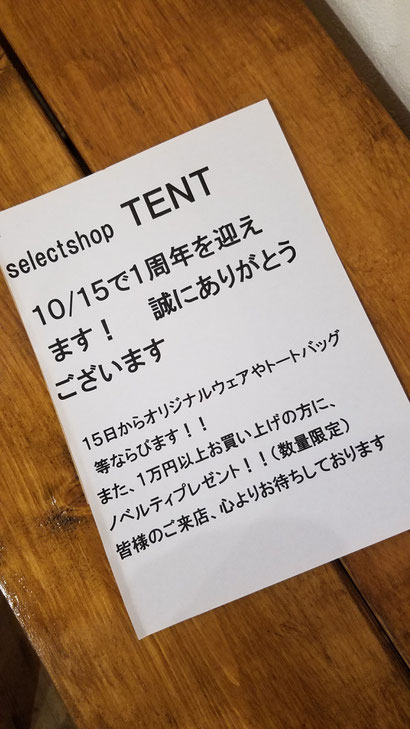 selectshop TENT
10/15で1周年を迎え
ます！　誠にありがとう
ございます
15日からオリジナルウェアやトートバッグ
等ならびます！！
また、1万円以上お買い上げの方に、
ノベルティプレゼント！！（数量限定）
皆様のご来店、心よりお待ちしております